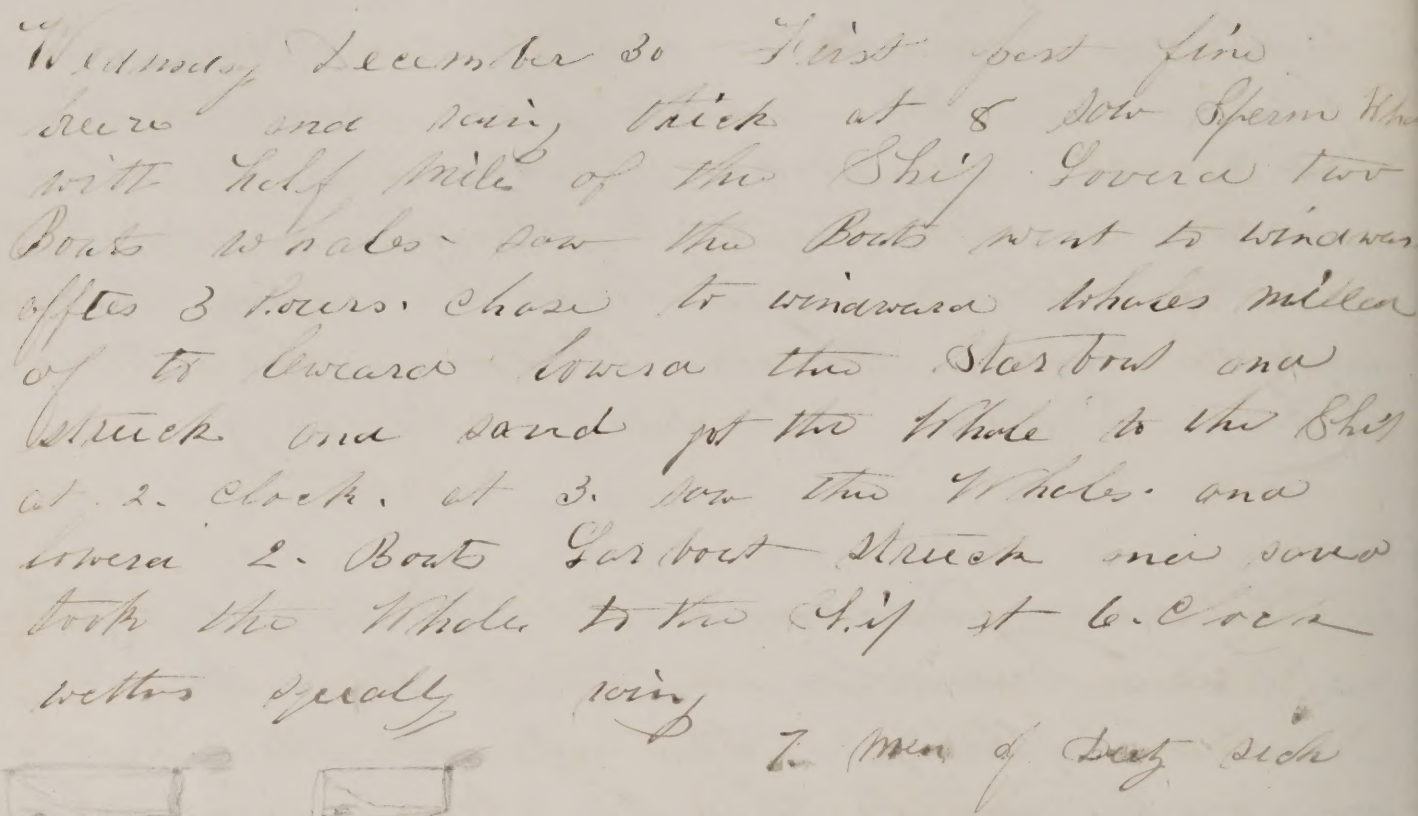 Wednsday December 30 First part fine
breze and rainy thick at 8 saw Sperm Wha
with half mile of the Ship Lowerd two
Boats whales saw the Boats went to windwar
affter 3 hours. chase to windward whales milled
of to leward lowerd the Starboat and
struck and saved got the Whale to the Ship
at 2. Clock. at 3. saw the Whales. and
lowerd 2. Boats Larboat struck and saved
took the Whale to the Ship at 6. Clock
wether squally rainy
7. men of Duty sick